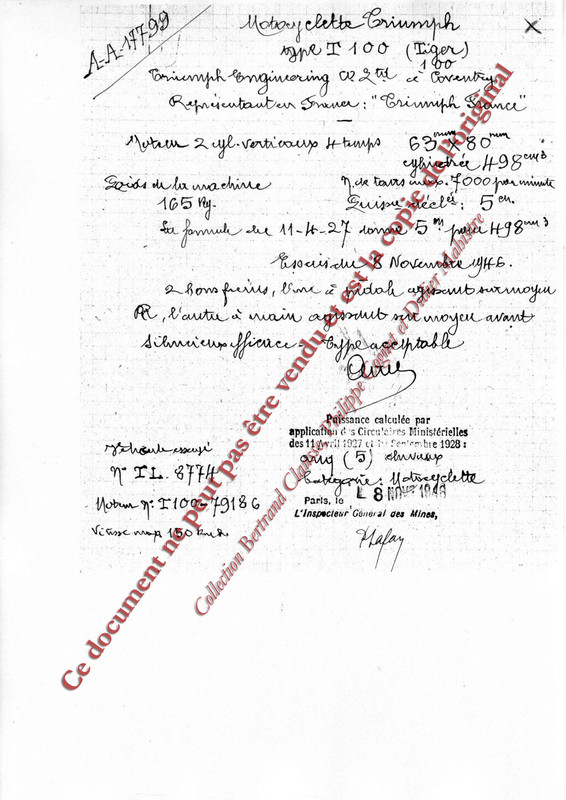 A-A-17799
Motocyclette Triumph
type T 100 (Tiger)
100
Triumph Engineering C° Ltd à Coventry
Représentant en France : "Triumph France"
Moteur 2 cyl. verticaux 4 temps 63 mm X 80 mm
cylindrée 498 cm3
Poids de la machine N. de tours max. 7000 par minute
165 Kg. Puiss. décl. : 5 cv.
La formule du 11-4-27 donne 5 pour 498 cm3
Essais du 8 Novembre 1946.
2 bons freins, l'un à pédale agissant sur moyeu
AR, l'autre à main agissant sur moyeu avant
Silencieux efficace - Type acceptable
Puissance calculée par
application des Circulaires Ministérielles
des 11 Avril 1927 et 1er Septembre 1928 :
cinq (5) chevaux
Catégorie : Motocyclette
Paris, le L 8 NOV 1946
L'Inspecteur Général des Mines,
Véhicule essayé
N° TL. 8774
Moteur N° : T100-79186
Vitesse max 150
Ce document ne peut pas être vendu et est la copie de l'original
Collection Bertrand Claisse Philippe Cognet et Didier Mabistre